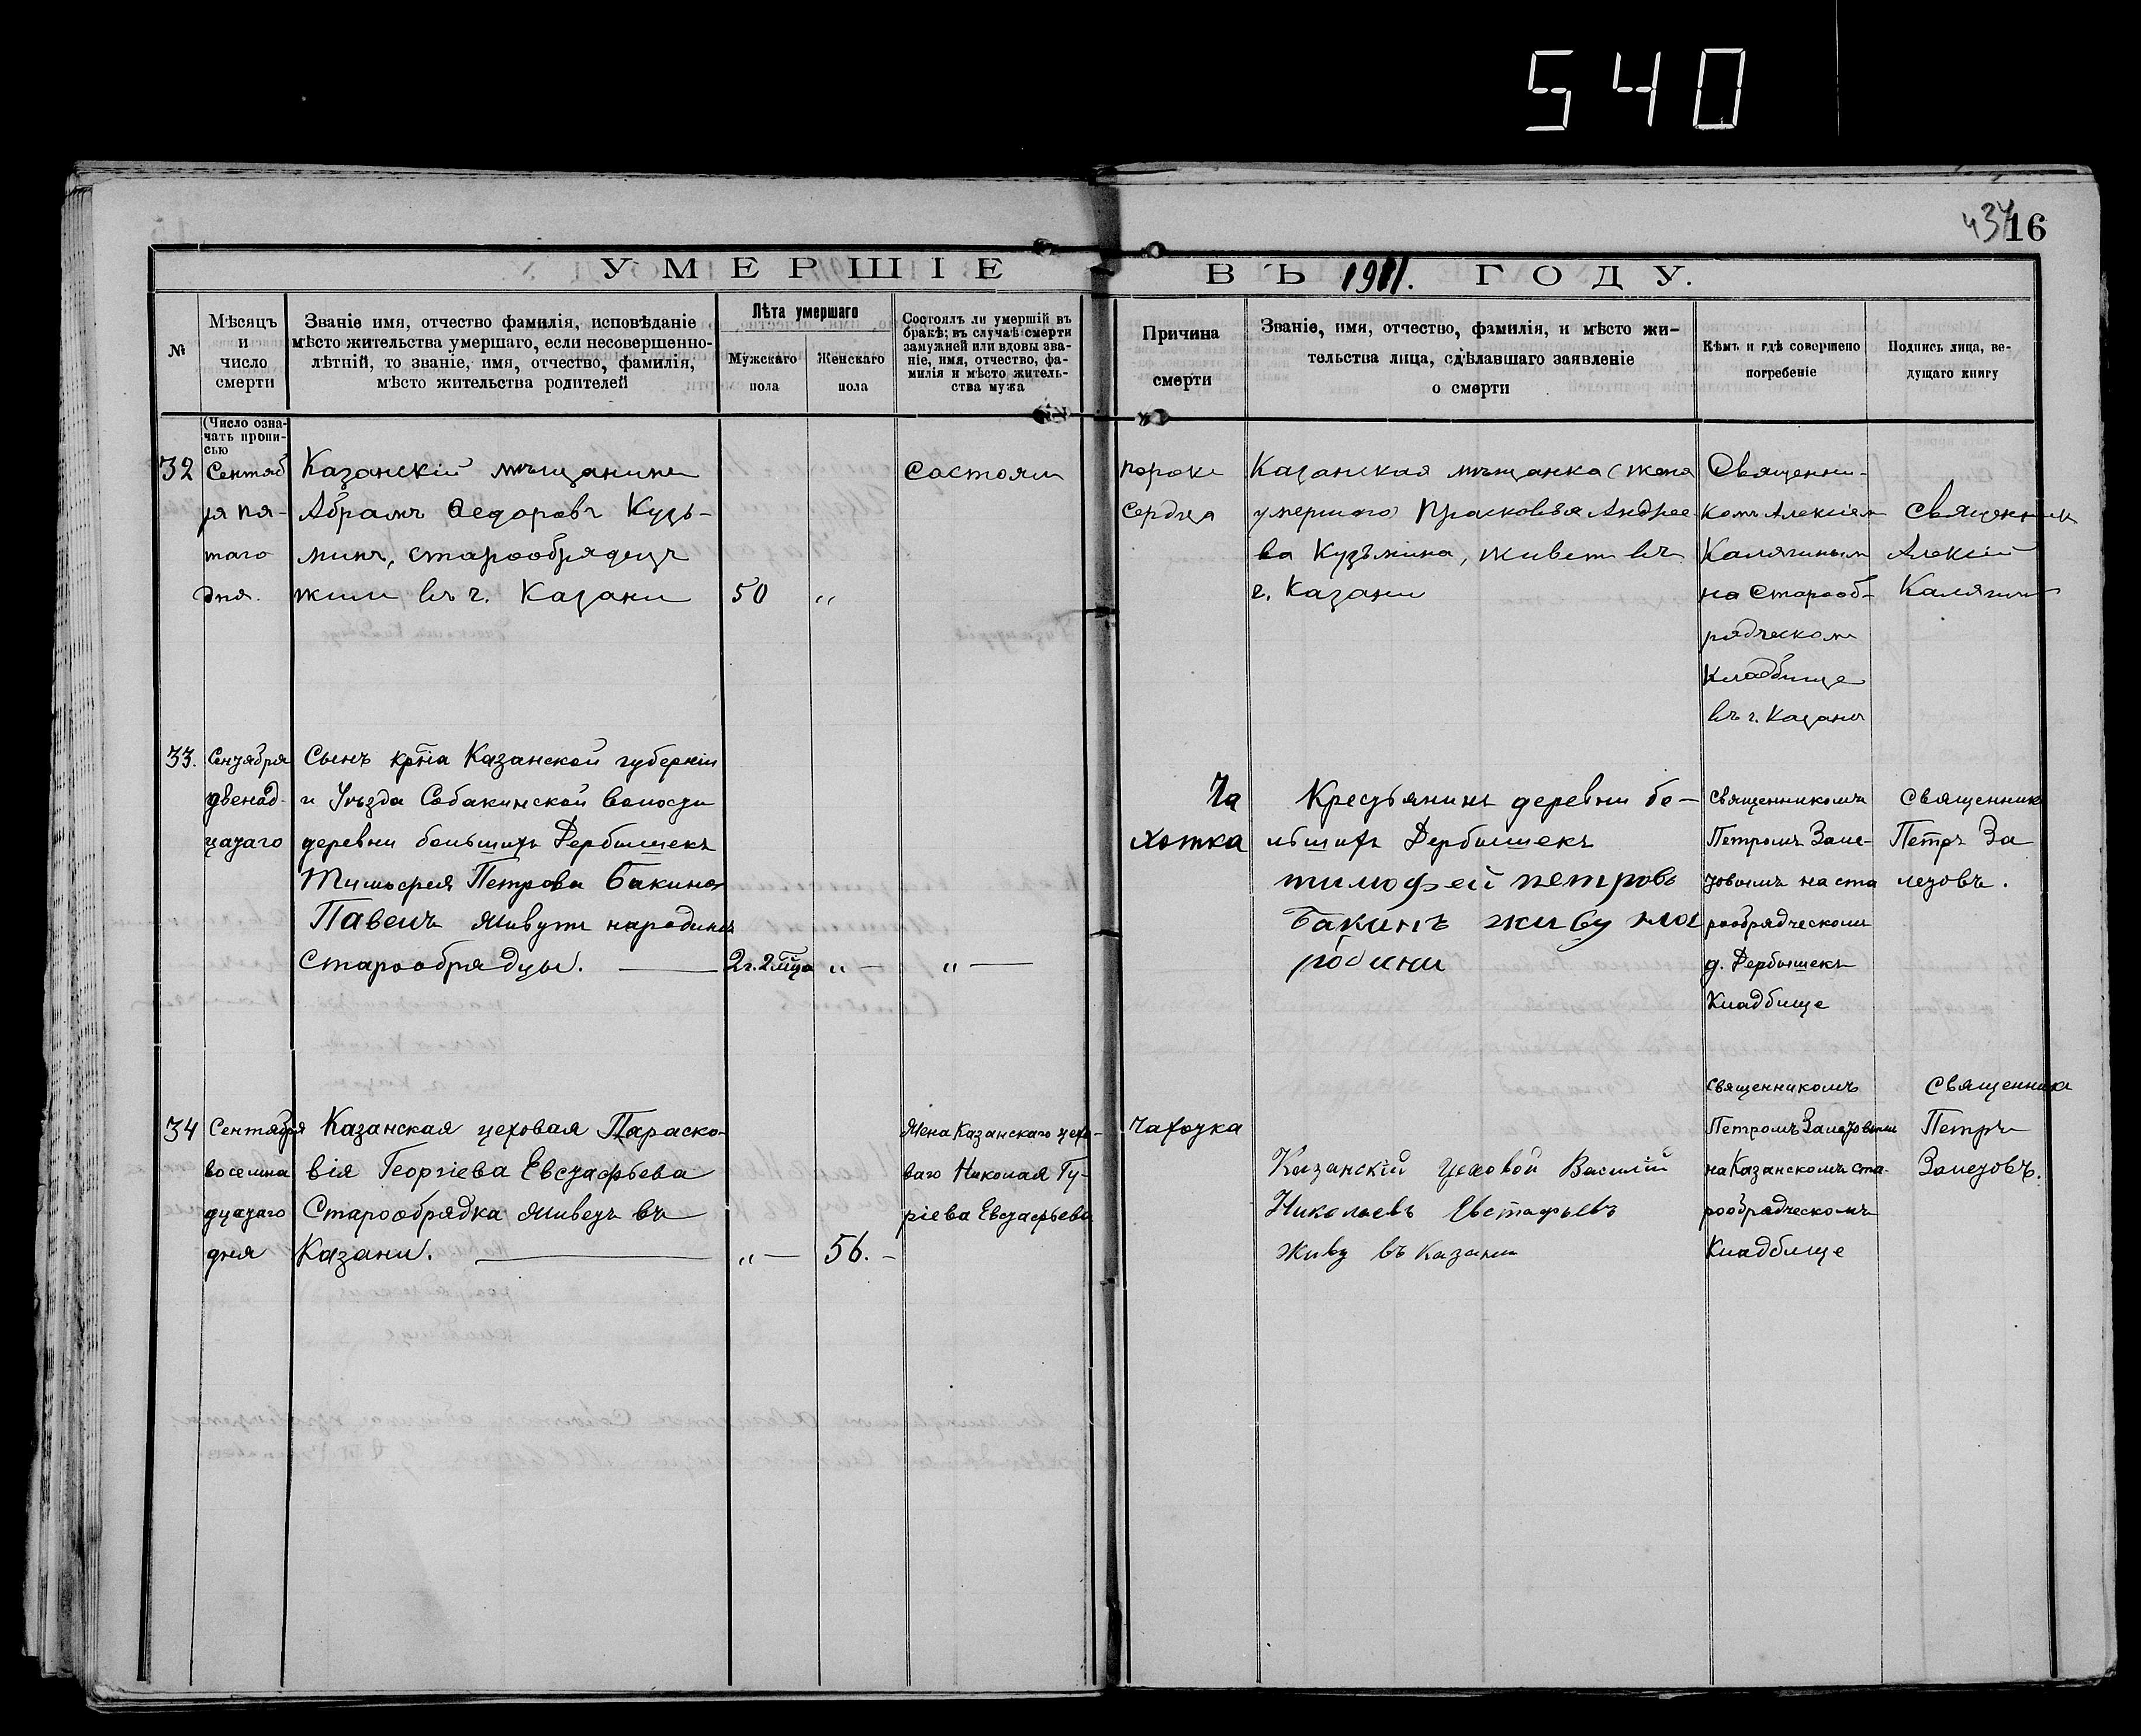 540
434
16
УМЕРШІЕ ВЪ 1911. ГОДУ.
№
Мѣсяцъ
и
число
смерти
Званіе имя, отчество фамилія, исповѣданіе
мѣсто жительства умершаго, если несовершенно-
лѣтній, то званіе, имя, отчество, фамилія,
мѣсто жительства родителей
Лѣта умершаго
Мужскаго
пола
Женскаго
пола
Состоялъ ли умершій въ
бракѣ; въ случаѣ смерти
замужней или вдовы зва-
ніе, имя, отчество, фа-
милія и мѣсто житель-
ства мужа
Причина
смерти
Званіе, имя, отчество, фамилія, и мѣсто жи-
тельства лица, сдѣлавшаго заявленіе
о смерти
Кѣмъ и гдѣ совершено
погребеніе
Подпись лица, ве-
дущаго книгу
(Число озна-
чать пропи-
сью
32
Сентяб
ря пя-
таго
дня.
Казанскій мѣщанинъ
Абрамъ Ѳедоровъ Кузь-
минъ, старообрядецъ
жилъ въ г. Казани
50
„
Состоялъ
порокъ
Сердца
Казанская мѣщанка (жена
умершаго) Прасковья Андрее
ва Кузьмина, живетъ въ
г. Казани
Священни-
комъ Алексіем
Калягиным
на Старооб-
рядческом
Кладбище
въ г. Казани
Священник
Алексій
Калягин
33.
Сентября
двенад-
цатаго
Сынъ крѣна Казанской губерніи
и Уѣзда Собакинской волости
деревни большихъ Дербышекъ
Тимофея Петрова Бакина
Павелъ живутъ народинѣ
Старообрядцы.
2 г. 2 мца
„ —
„ —
Ча
хотка
Крестьянинъ деревни бо-
льшихъ Дербышекъ
тимофей петровъ
Бакинъ живу на
родини
священникомъ
Петромъ Зале-
товымъ на ста
рообрядческом
д. Дербышекъ
Кладбище
Священник
Петръ За
летовъ.
34
Сентября
восемна
дцатаго
дня
Казанская цеховая Параско-
вія Георгіева Евстафьева
Старообрядка живетъ въ
Казани.
„ —
56. –
Жена Казанскаго цехо-
ваго Николая Гу-
ріева Евстафьева
Чахотка
Казанскій Цеховой Василій
Николаевъ Евстафьевъ
живу въ Казани
священникомъ
Петромъ Залетовым
на Казанскомъ ста-
рообрядческомъ
Кладбище
Священник
Петръ
Залетовъ.